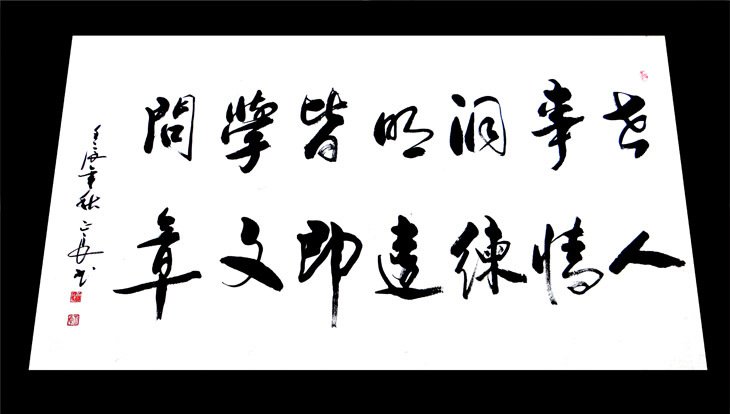 世事洞明皆學問
人情練達即文章
壬辰年秋